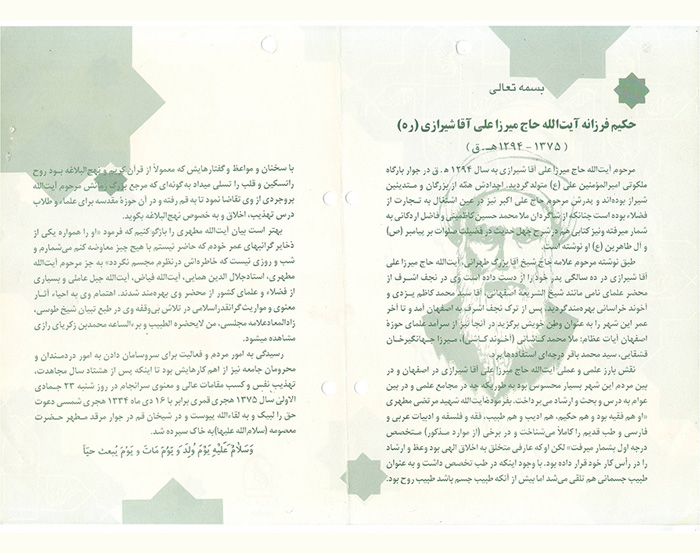 بسمه تعالی
حکیم فرزانه آیت‌الله حاج میرزا علی آقا شیرازی (ره)
( ۱۳۷۵ - ۱۲۹۴ هـ. ق )
مرحوم آیت‌الله حاج میرزا علی آقا شیرازی به سال ۱۲۹۴ ه‍. ق در جوار بارگاه
ملکوتی امیرالمؤمنین علی (ع) متولد گردید. اجدادش همه از بزرگان و متدینین
شیراز بوده‌اند و پدرش مرحوم حاج علی اکبر نیز در عین اشتغال به تجارت از
فضلاء بوده است چنانکه از شاگردان ملا محمد حسین کاظمینی و فاضل اردکانی به
شمار میرفته و نیز کتابی هم در شرح چهل حدیث در فضیلت صلوات بر پیامبر (ص)
و آل طاهرین (ع) او نوشته است.
طبق نوشته مرحوم علامه حاج شیخ آقا بزرگ طهرانی، آیت‌الله حاج میرزا علی
آقا شیرازی در ده سالگی پدر خود را از دست داده است وی در نجف اشرف از
محضر علمای نامی مانند شیخ الشریعه اصفهانی، آقا سید محمد کاظم یزدی و
آخوند خراسانی بهره‌مند گردید. پس از ترک نجف اشرف به اصفهان آمد و تا آخر
عمر این شهر را به عنوان وطن خویش برگزید در آنجا نیز از سرآمد علمای حوزهٔ
اصفهان آیات عظام: ملا محمد کاشانی (آخوند کاشی)، میرزا جهانگیرخان
قشقایی، سید محمد باقر درچه‌ای استفاده‌ها برد.
نقش بارز علمی و عملی آیت‌الله حاج میرزا علی آقا شیرازی در اصفهان و در
بین مردم این شهر بسیار محسوس بود به طوریکه چه در مجامع علمی و در بین
عوام به درس و بحث و ارشاد می پرداخت. بفرمودهٔ آیت‌الله شهید مرتضی مطهری
«او هم فقیه بود و هم حکیم، هم ادیب و هم طبیب، فقه و فلسفه و ادبیات عربی و
فارسی و طب قدیم را کاملاً می‌شناخت و در برخی (از موارد مذکور) متخصص
درجه اول بشمار میرفت» لکن او که عارفی متخلق به اخلاق الهی بود وعظ و ارشاد
را در رأس کار خود قرار داده بود. با وجود اینکه در طب تخصص داشت و به عنوان
طبیب جسمانی هم تلقی می‌شد اما بیش از آنکه طبیب جسم باشد طبیب روح بود.
با سخنان و مواعظ و گفتارهایش که معمولاً از قرآن کریم و نهج‌البلاغه بود روح
راتسکین و قلب را تسلی میداد به گونه‌ای که مرجع بزرگ زمانش مرحوم آیت‌الله
بروجردی از وی تقاضا نمود تا به قم رفته و در آن حوزهٔ مقدسه برای علماء و طلاب
درس تهذیب، اخلاق و به خصوص نهج‌البلاغه بگوید.
بهتر است بیان آیت‌الله مطهری را بازگو کنیم که فرمود «او را همواره یکی از
ذخایر گرانبهای عمر خودم که حاضر نیستم با هیچ چیز معاوضه کنم می‌شمارم و
شب و روزی نیست که خاطره‌اش درنظرم مجسم نگردد» به جز مرحوم آیت‌الله
مطهری، استادجلال الدین همایی، آیت‌الله فیاض، آیت‌الله جبل عاملی و بسیاری
از فضلاء و علمای کشور از محضر وی بهره‌مند شدند. اهتمام وی به احیاء آثار
معنوی و مواریث گرانقدراسلامی در تلاش بی‌وقفه وی در طبع تبیان شیخ طوسی،
زادالمعادعلامه مجلسی، من لایحضره الطبیب و برءالساعه محمدبن زکریای رازی
مشاهده میشود.
رسیدگی به امور مردم و فعالیت برای سروسامان دادن به امور دردمندان و
محرومان جامعه نیز از اهم کارهایش بود تا اینکه پس از هشتاد سال مجاهدت،
تهذیب نفس و کسب مقامات عالی و معنوی سرانجام در روز شنبه ۲۳ جمادی
الاولی سال ۱۳۷۵ هجری قمری برابر با ۱۶ دی ماه ۱۳۳۴ هجری شمسی دعوت
حق را لبیک و به لقاءالله پیوست و در شیخان قم در جوار مرقد مطهر حضرت
معصومه (سلام‌الله علیها) به خاک سپرده شد.
وَسَلامٌ عَلَیْهِ یَوْمَ وُلِدَ وَ یَوْمَ ماتَ وَ یَوْمَ یُبعث حیّاً